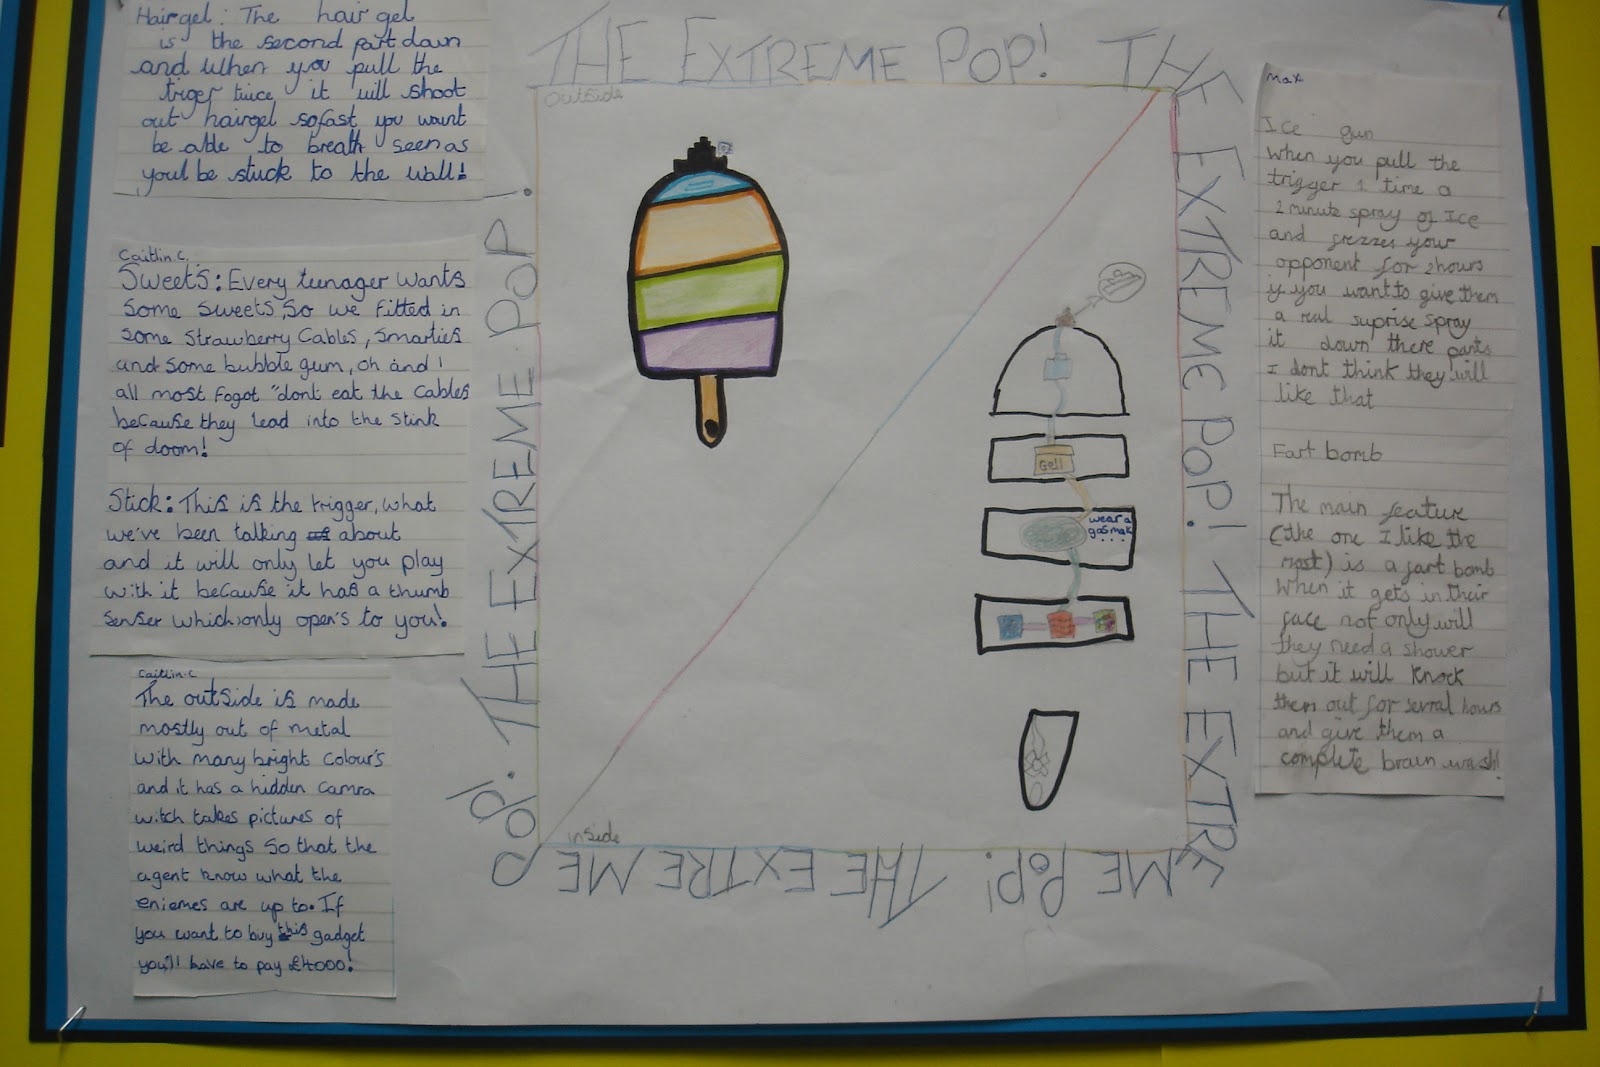 Hairgel: The hair gel
is the second part down
and when you pull the
triger twice it will shoot
out hairgel sofast you wont
be able to breath seen as
youl be stuck to the wall!
Caitlin.C.
Sweet's: Every teenager wants
Some sweets, So we fitted in
some Strawberry Cables, Smarties
and some bubble gum, oh and I
all most fogot "dont eat the Cables
because they lead into the Stink
of doom!
Stick: This is the trigger, what
we've been talking about
and it will only let you play
with it because it has a thumb
senser which only open's to you!
Caitlin.C
The outside is made
mostly out of metal
with many bright Colour's
and it has a hidden Camra
witch takes pictures of
weird things so that the
agent know what the
eniemes are up to. If
you want to buy this gadget
you'll have to pay £4000!
THE EXTREME POP! THE EXTREME POP! THE EXTREME POP! THE EXTREME POP. THE EXTREME POP!
Outside
Gell
wear a
gas mak
...
inside
Max
Ice gun
When you pull the
trigger 1 time a
2 minute spray of Ice
and frezzes your
opponent for 2 hours
if you want to give them
a real suprise spray
it down there parts
I dont think they will
like that
Fart bomb
The main feature
(the one I like the
most) is a fart bomb
When it gets in their
face not only will
they need a shower
but it will knock
them out for sevral hours
and give them a
complete brain wash!